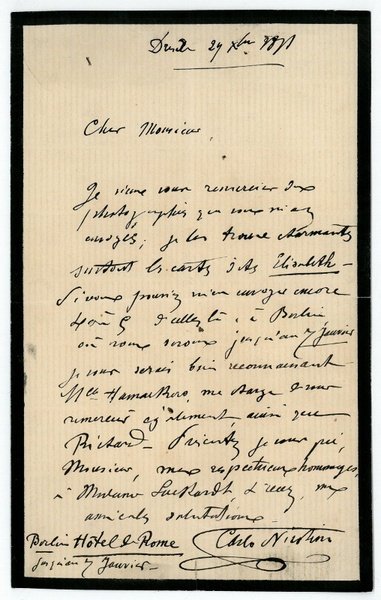 Dresde 29 Xbre 1871
Cher Monsieur,
Je viens vous remercier des
photographies que vous m'avez
envoyés; je les trouve charmantes
surtout les cartes d'Elisabeth –
Si vous pouviez m'en envoyer encore
4 ou 5 d'elles là, à Berlin
où nous serons jusqu'au 7 Janvier
je vous serais bien reconnaissant
Mlle me charge de vous
remercier également ainsi que
Richard – Présentez je vous prie,
Monsieur, mes respectueux hommages
à Madame et recevez mes
amicales salutations
Berlin Hôtel de Rome
jusqu'au 7 Janvier –
Carlo Nicotini